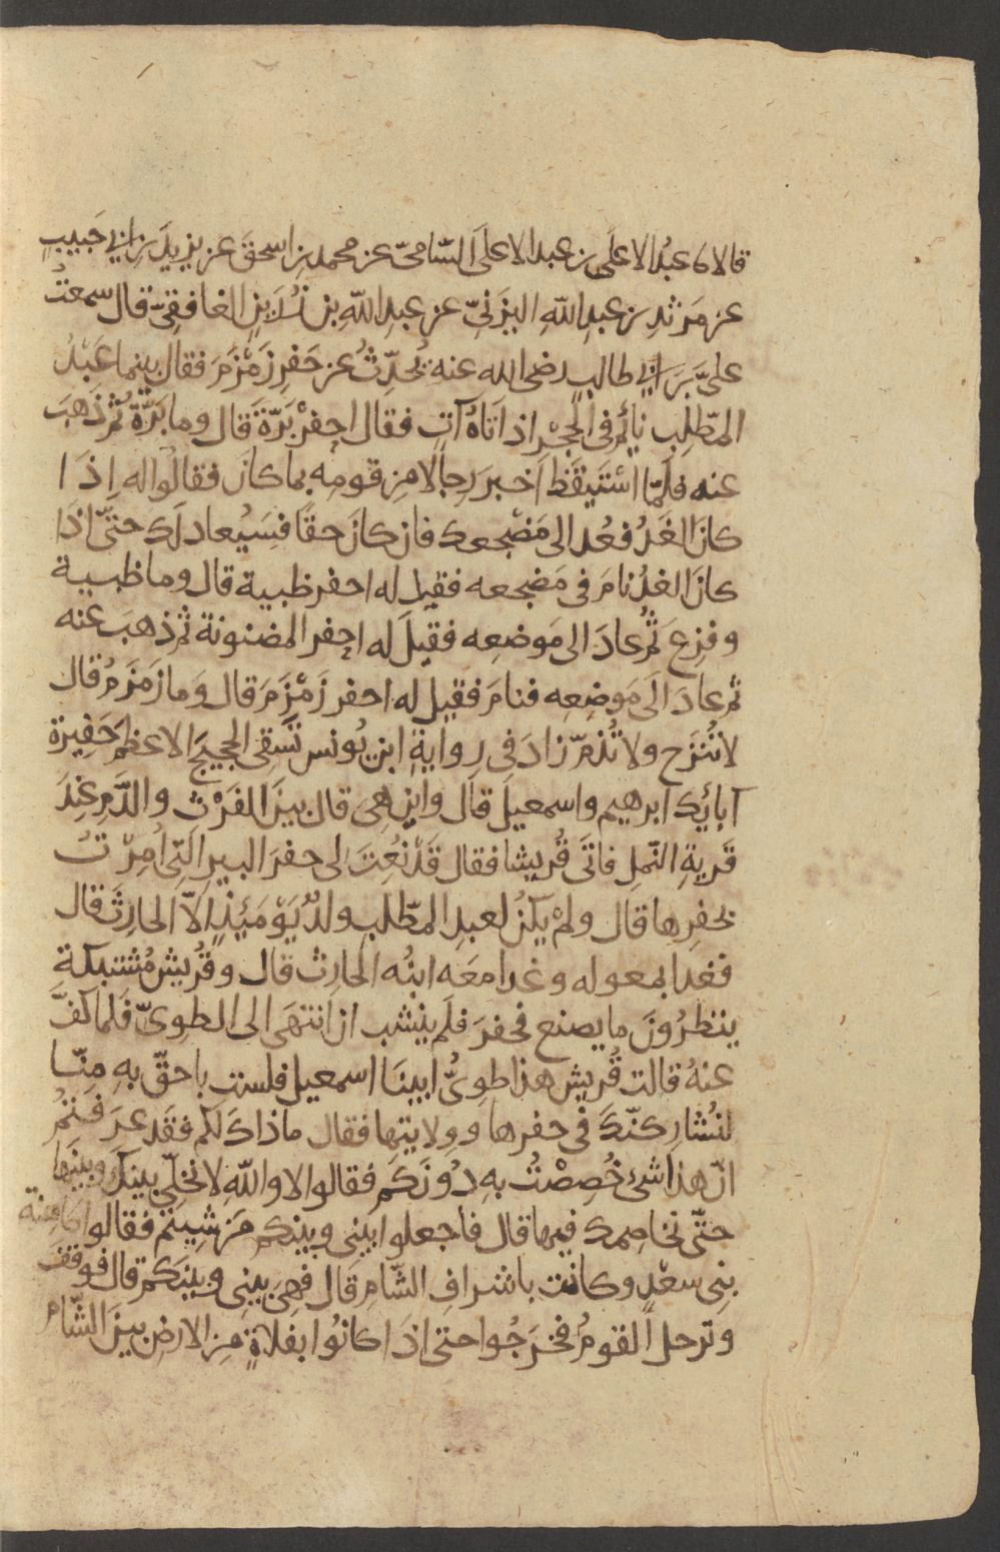 قالا نا عبد الاعلى بن عبد الاعلى السّامىّ عن محمد بن اسحق عن يزيد بن ابي حبيب
عن مَرثد بن عبدِ اللّهِ اليزَنىّ عن عبدِ اللّهِ بن زُرَيرٍ الغافقىّ قال سمعتُ
علىَّ بنَ ابي طالبٍ رضى الله عنه يُحدّثُ عن حَفرِ زَمْزَمَ فقال بينما عَبْدُ
المطّلِبِ نائمٌ فى الحِجْرِ اذ اَتَاهُ آتٍ فقال احفِرْ بَرّةَ قَال وما بَرّةُ ثمّ ذهَبَ
عنه فلَمّا اسْتَيقَظَ اَخبرَ رِجالا من قومِه بما كانَ فقالُوا له اِذَا
كانَ الغَدُ فعُد الى مَضْجعِك فان كانَ حقّا فسَيُعاد لَك حتّى اذَا
كانَ الغدُ نامَ فى مَضجعه فقيل له احفر ظبية قال وما ظبية
وفزِعَ ثمّ عادَ الى مَوضعِه فقيلَ له احفر المضنونة ثمّ ذهبَ عنه
ثم عادَ الَى مَوضِعِه فنامَ فقيل له احفر زَمْزَمَ قال وَما زمزَمُ قال
لا تُنْزَح ولا تُذمّ زادَ فى رِوايةِ ابن يُونس تَسقى الحجيجَ الاعظم حَفِيرة
آبائِك ابرهيم واسمعيلَ قال واين هِى قال بينَ الفَرْث والدَّمِ عِندَ
قَريةِ النّملِ فاتَى قُريشا فقال قَدْ نُعِتَ لى حفرَ البير الّتى اُمِرْتُ
بحفرِها قال ولمْ يكنْ لعبدِ المطّلب ولدٌ يَوْمَئِذٍ اِلاّ الحارِثَ قال
فغدا بمعوله وغدا معَه ابنُه الحارِث قال وقُريش مُشتبكة
ينظرُونَ ما يصنع فحفرَ فلَم ينشب ان انتهَى الى الطوىّ فَلما كَفَّ
عنهُ قالت قُريش هذا طوىُّ ابينَا اسمعيل فلست باحقّ بهِ منّا
لنُشارِكنّكَ فى حفرها وولايتِها فقال ماذاك لكم فقَد عرَفتمُ
انّ هذا شئ خُصِصْتُ بهِ دُونَكم فقالوا لا واللّهِ لا نخلّى بينكَ وبينَها
حتّى نخاصِمك فيها قال فاجعلوا بينى وبينكم مَن شِيتم فقالوا كاهِنة
بنِى سعْدٍ وكانت باشرافِ الشّامِ قَال فهِىَ بينِى وبينَكم قال فوقفَ
وترحل القومُ فخَرَجُوا حتى اذَا كانُوا بفَلاةٍ من الارضِ بينَ الشّامِ